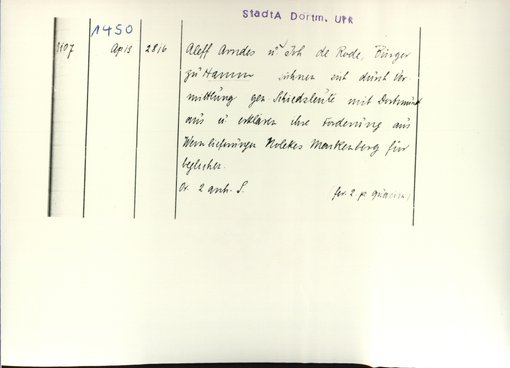 StadtA Dortm. UPR
1450
3107 Apr 5 2816 Aleff Arndes u. Joh de Rode, Bürger
zu Hamm sühnen sich durch Ver
mittlung gen. Schiedsleute mit Dortmund
aus u erklären ihre Forderung aus
Weinlieferungen Noldekes Mankenberg für
beglichen.
Or. 2 anh. S.